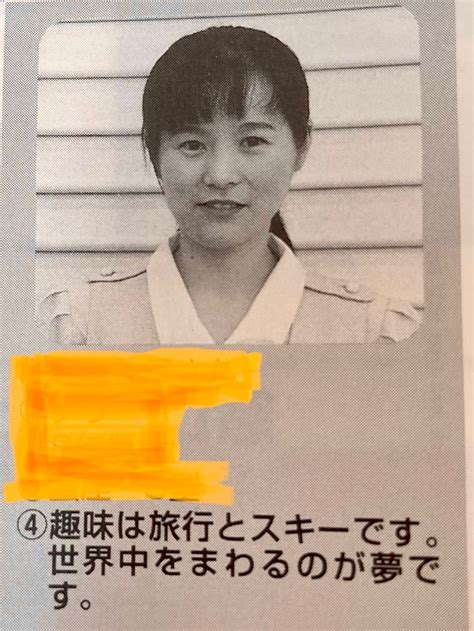 ④趣味は旅行とスキーです。
世界中をまわるのが夢で
す。